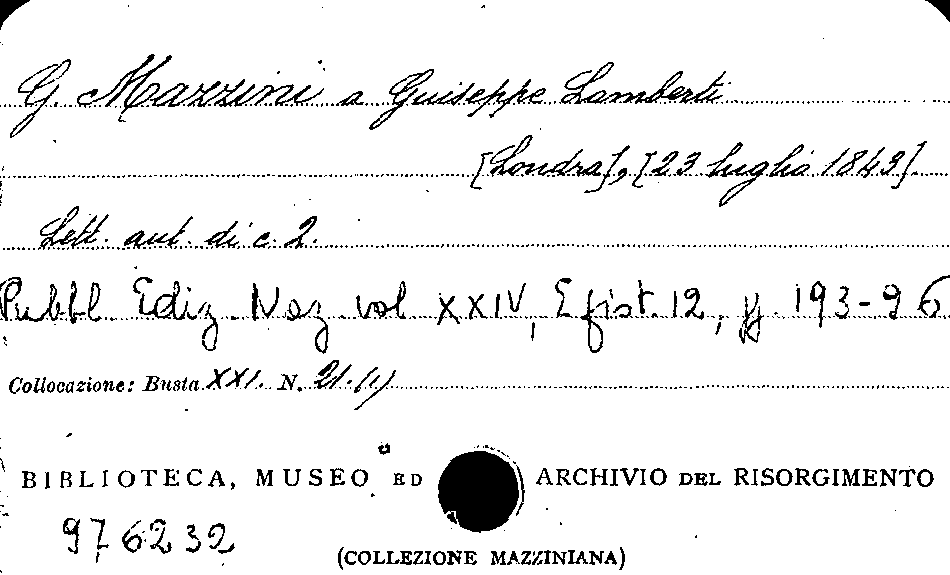 G. Mazzini a Guiseppe Lamberti
[Londra], [23 luglio 1843].
Lett. aut. di c. 2.
Pubbl. Ediz. Naz. vol. XXIV, Epist. 12, pp. 193-96
Collocazione: Busta XXI. N. 21.(1)
BIBLIOTECA, MUSEO ED ARCHIVIO DEL RISORGIMENTO
976232
(COLLEZIONE MAZZINIANA)